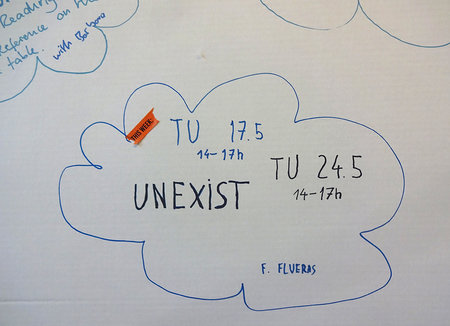 Reading
Reference on the
table.
with Barbara
THIS WEEK
TU 17.5
14-17h
TU 24.5
14-17h
UNEXiST
F. FLUERAS